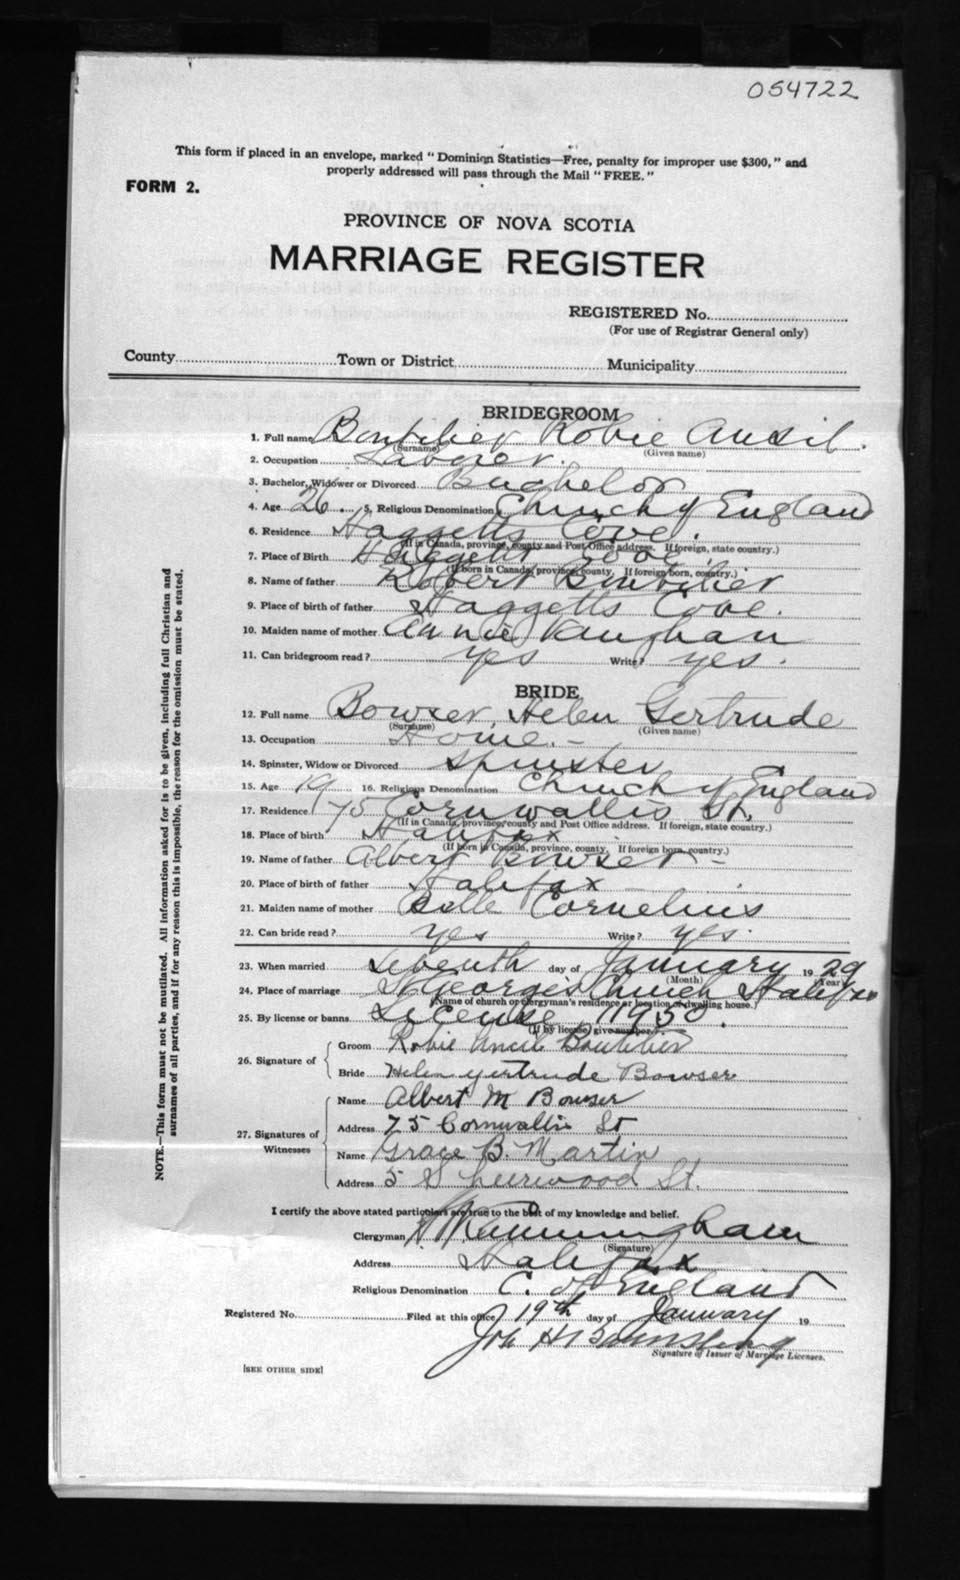 054722
This form if placed in an envelope, marked "Dominion Statistics—Free, penalty for improper use $300," and
properly addressed will pass through the Mail "FREE."
FORM 2.
PROVINCE OF NOVA SCOTIA
MARRIAGE REGISTER
REGISTERED No.
(For use of Registrar General only)
County Town or District Municipality
BRIDEGROOM
1. Full name Boutilier Robie Ancil.
(Surname) (Given name)
2. Occupation Laborer.
3. Bachelor, Widower or Divorced Bachelor
4. Age 26 5. Religious Denomination Church of England
6. Residence Haggetts Cove.
(If in Canada, province, county and Post Office address. If foreign, state country.)
7. Place of Birth Haggetts Cove
(If born in Canada, province, county. If foreign born, country.)
8. Name of father Robert Boutilier
9. Place of birth of father Haggetts Cove.
10. Maiden name of mother Annie Vaughan
11. Can bridegroom read? yes Write? yes.
BRIDE
12. Full name Bowser, Helen Gertrude
(Surname) (Given name)
13. Occupation Home. -
14. Spinster, Widow or Divorced Spinster
15. Age 19 16. Religious Denomination Church of England
17. Residence 75 Cornwallis St.
(If in Canada, province, county and Post Office address. If foreign, state country.)
18. Place of birth Halifax
(If born in Canada, province, county. If foreign born, country.)
19. Name of father Albert Bowser -
20. Place of birth of father Halifax
21. Maiden name of mother Belle Cornelius
22. Can bride read? yes Write? yes.
23. When married Seventh day of January 1929
(Month) (Year)
24. Place of marriage St George's Church Halifax
(Name of church or clergyman's residence or location of dwelling house.)
25. By license or banns License 11950.
(If by license, give number.)
26. Signature of Groom Robie Ancil Boutilier
Bride Helen Gertrude Bowser
27. Signatures of Witnesses Name Albert M Bowser
Address 75 Cornwallis St
Name Grace B. Martin
Address 5 St.
I certify the above stated particulars are true to the best of my knowledge and belief.
Clergyman Cunningham
(Signature)
Address Halifax
Religious Denomination C. of England
Registered No. Filed at this office 19th day of January 19
Signature of Issuer of Marriage Licenses.
[SEE OTHER SIDE]
NOTE.—This form must not be mutilated. All information asked for is to be given, including full Christian and
surnames of all parties, and if for any reason this is impossible, the reason for the omission must be stated.